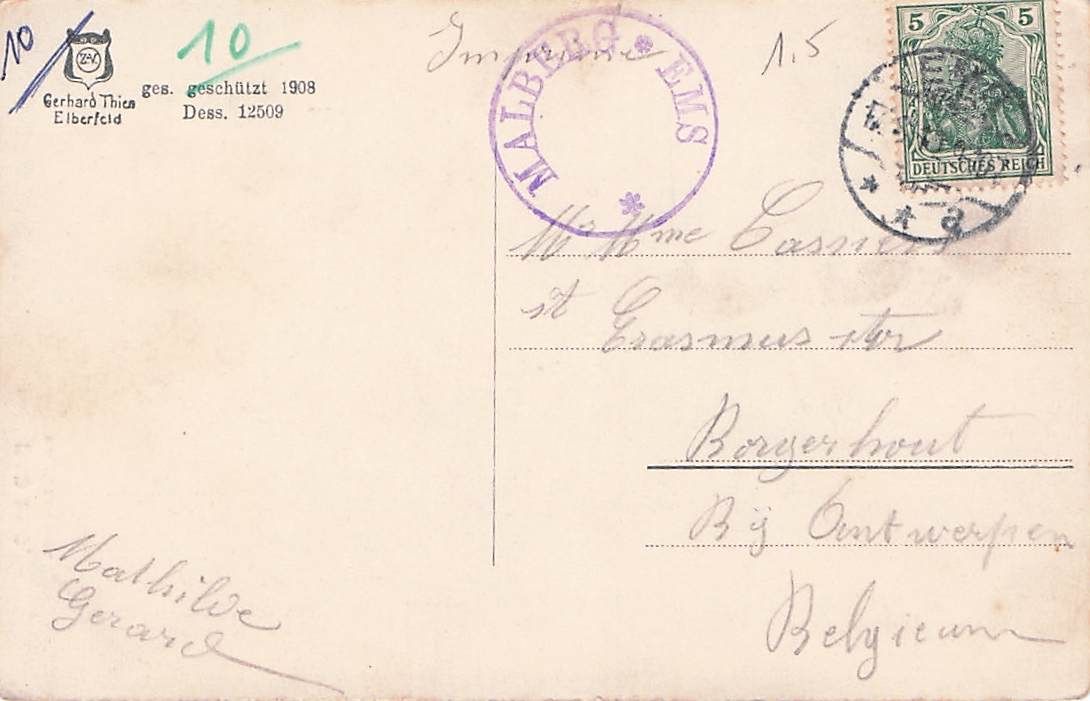 10
10
Z.V.
Gerhard Thien
Elberfeld
ges. geschützt 1908
Dess. 12509
Imprimé
1.5
MALBERG * EMS *
5 5
DEUTSCHES REICH
* * a
Mr Mme Casners
st Erasmus str
Borgerhout
Bij Antwerpen
Belgieum
Mathilde
Gerard